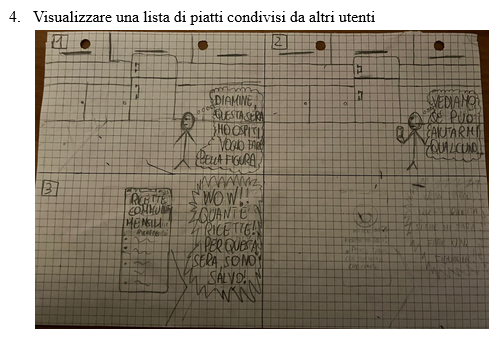 4. Visualizzare una lista di piatti condivisi da altri utenti
1
DIAMINE,
QUESTA SERA
HO OSPITI
VOGLIO FARE
BELLA FIGURA
2
VEDIAMO
SE PUÒ
AIUTARMI
QUALCUNO
3
RICETTE
COMMUNITY
MENSILI
WOW!!
QUANTE
RICETTE!
PER QUESTA
SERA SONO
SALVO!